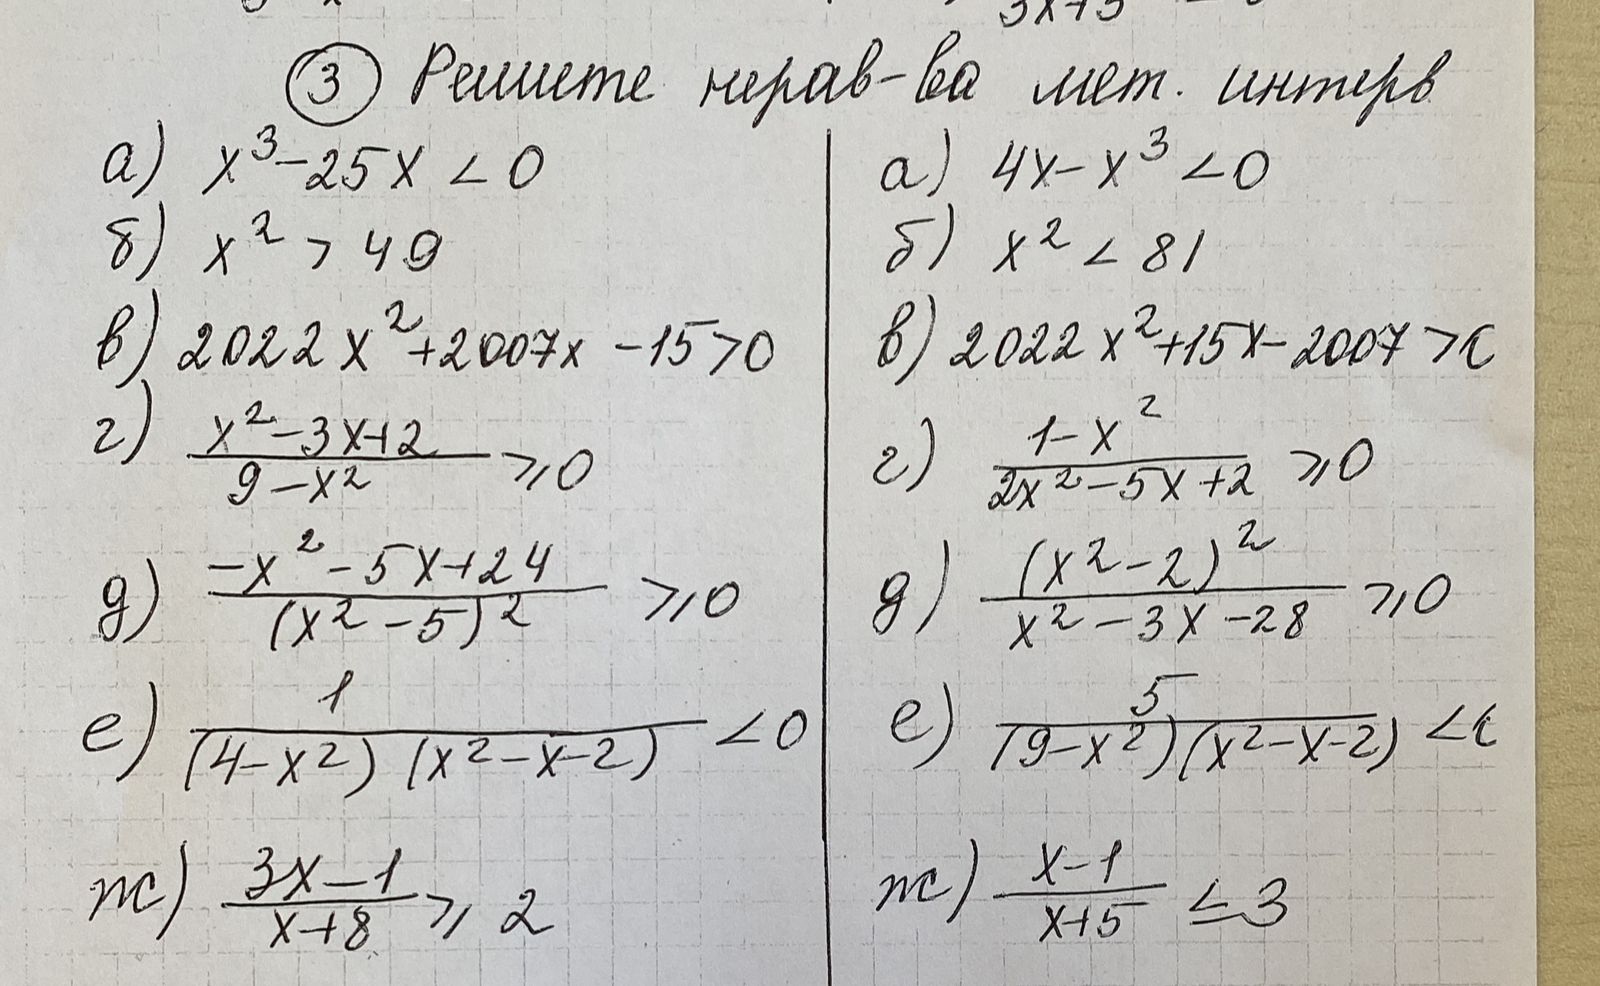 3x+5
③ Решите нерав-ва мет. интерв
а) x³-25x < 0
б) x² > 49
в) 2022x²+2007x-15>0
г) (x²-3x+2)/(9-x²) ⩾ 0
д) (-x²-5x+24)/((x²-5)²) ⩾ 0
е) 1/((4-x²)(x²-x-2)) < 0
ж) (3x-1)/(x+8) ⩾ 2
а) 4x-x³ < 0
б) x² < 81
в) 2022x²+15x-2007 >
г) (1-x²)/(2x²-5x+2) ⩾ 0
д) ((x²-2)²)/(x²-3x-28) ⩾ 0
е) 5/((9-x²)(x²-x-2)) <
ж) (x-1)/(x+5) ≤ 3